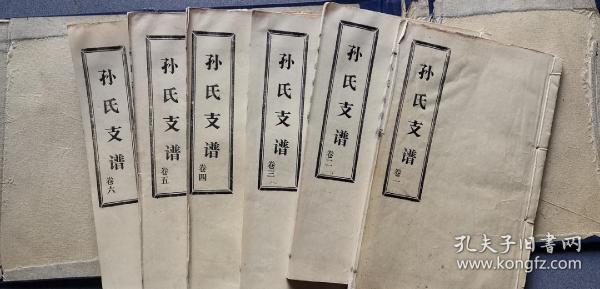 孙氏支谱
卷六
孙氏支谱
卷五
孙氏支谱
卷四
孙氏支谱
卷三
孙氏支谱
卷二
孙氏支谱
卷一
孔夫子旧书网
www.kongfz.com